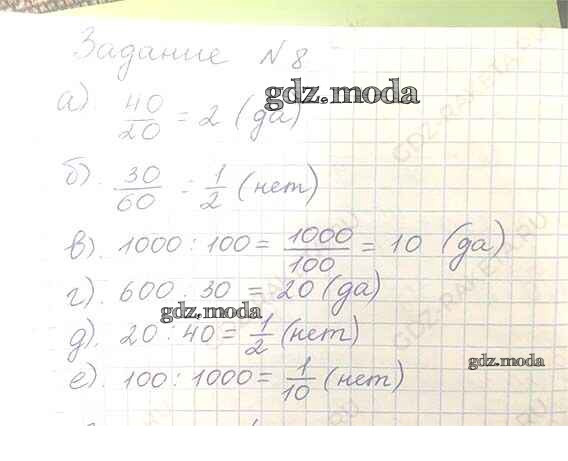 Задание №8
а) 40/20 = 2 (да)
gdz.moda
б). 30/60 = 1/2 (нет)
в). 1000 : 100 = 1000/100 = 10 (да)
г). 600 : 30 = 20 (да)
gdz.moda
д). 20 : 40 = 1/2 (нет)
gdz.moda
е). 100 : 1000 = 1/10 (нет)
GDZ-RAKETA.RU
GDZ-RAKETA.RU